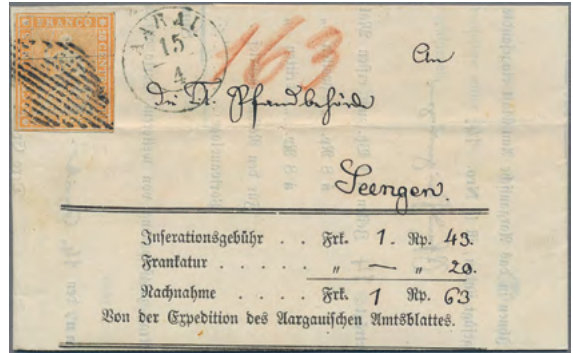 FRANCO
AARAU
15
4
163
An
die Tit. Pfandbehörde
Seengen.
Inserationsgebühr . . Frk. 1. Rp. 43.
Frankatur . . . . . " — " 20.
Nachnahme . . . . Frk. 1 Rp. 63
Von der Expedition des Aargauischen Amtsblattes.